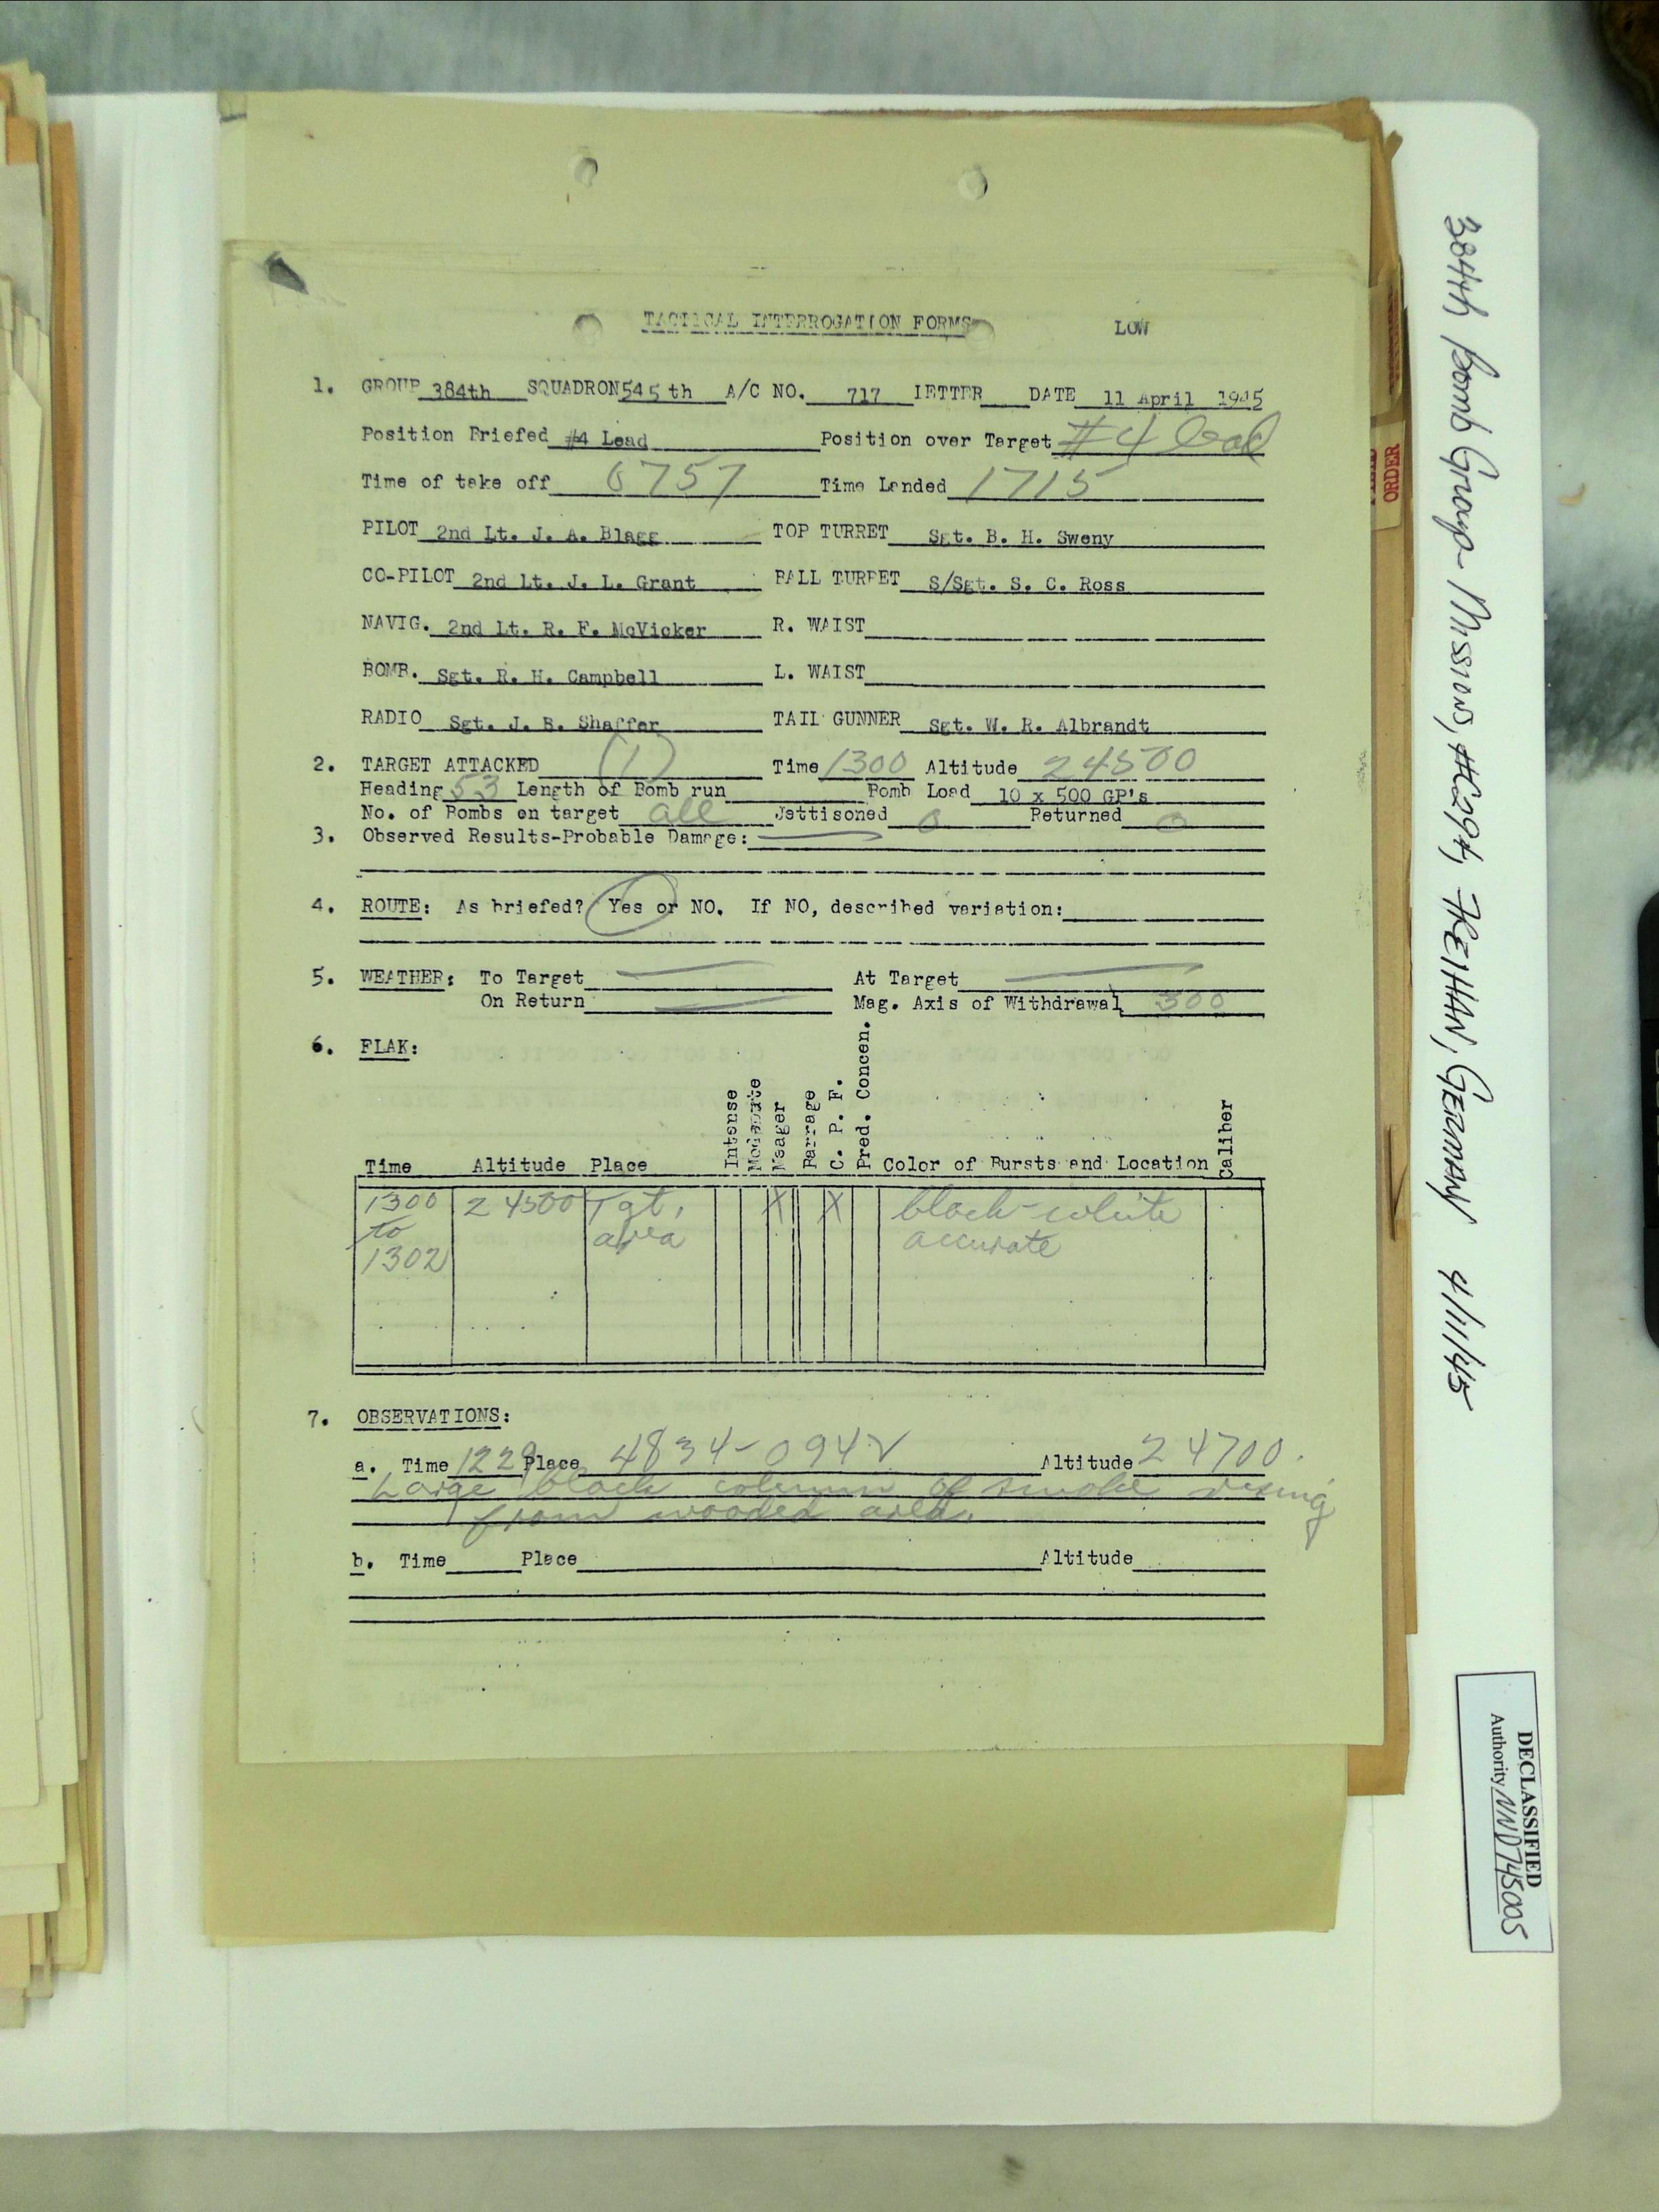 TACTICAL INTERROGATION FORMS LOW
1. GROUP 384th SQUADRON 545th A/C NO. 717 LETTER DATE 11 April 1945
Position Briefed #4 Lead Position over Target #4 lead
Time of take off 0757 Time Landed 1715
PILOT 2nd Lt. J. A. Blagg TOP TURRET Sgt. B. H. Sweny
CO-PILOT 2nd Lt. J. L. Grant BALL TURRET S/Sgt. S. C. Ross
NAVIG. 2nd Lt. R. F. McVicker R. WAIST
BOMB. Sgt. R. H. Campbell L. WAIST
RADIO Sgt. J. B. Shaffer TAIL GUNNER Sgt. W. R. Albrandt
2. TARGET ATTACKED (1) Time 1300 Altitude 24500
Heading 53 Length of Bomb run Bomb Load 10 x 500 GP's
No. of Bombs on target all Jettisoned 0 Returned 0
3. Observed Results-Probable Damage:
4. ROUTE: As briefed? Yes or NO. If NO, described variation:
5. WEATHER: To Target At Target
On Return Mag. Axis of Withdrawal 300
6. FLAK:
Time Altitude Place Intense Moderate Meager Barrage C. P. F. Pred. Concen. Color of Bursts and Location Caliber
1300 24500 Tgt. X X black-white
to area accurate
1302
7. OBSERVATIONS:
a. Time 1229 Place 4834- Altitude 24700.
Large black column of smoke rising
from wooded area.
b. Time Place Altitude
ORDER
384th Bomb Group Missions, #294, GERMANY 4/11/45
DECLASSIFIED
Authority NND745005